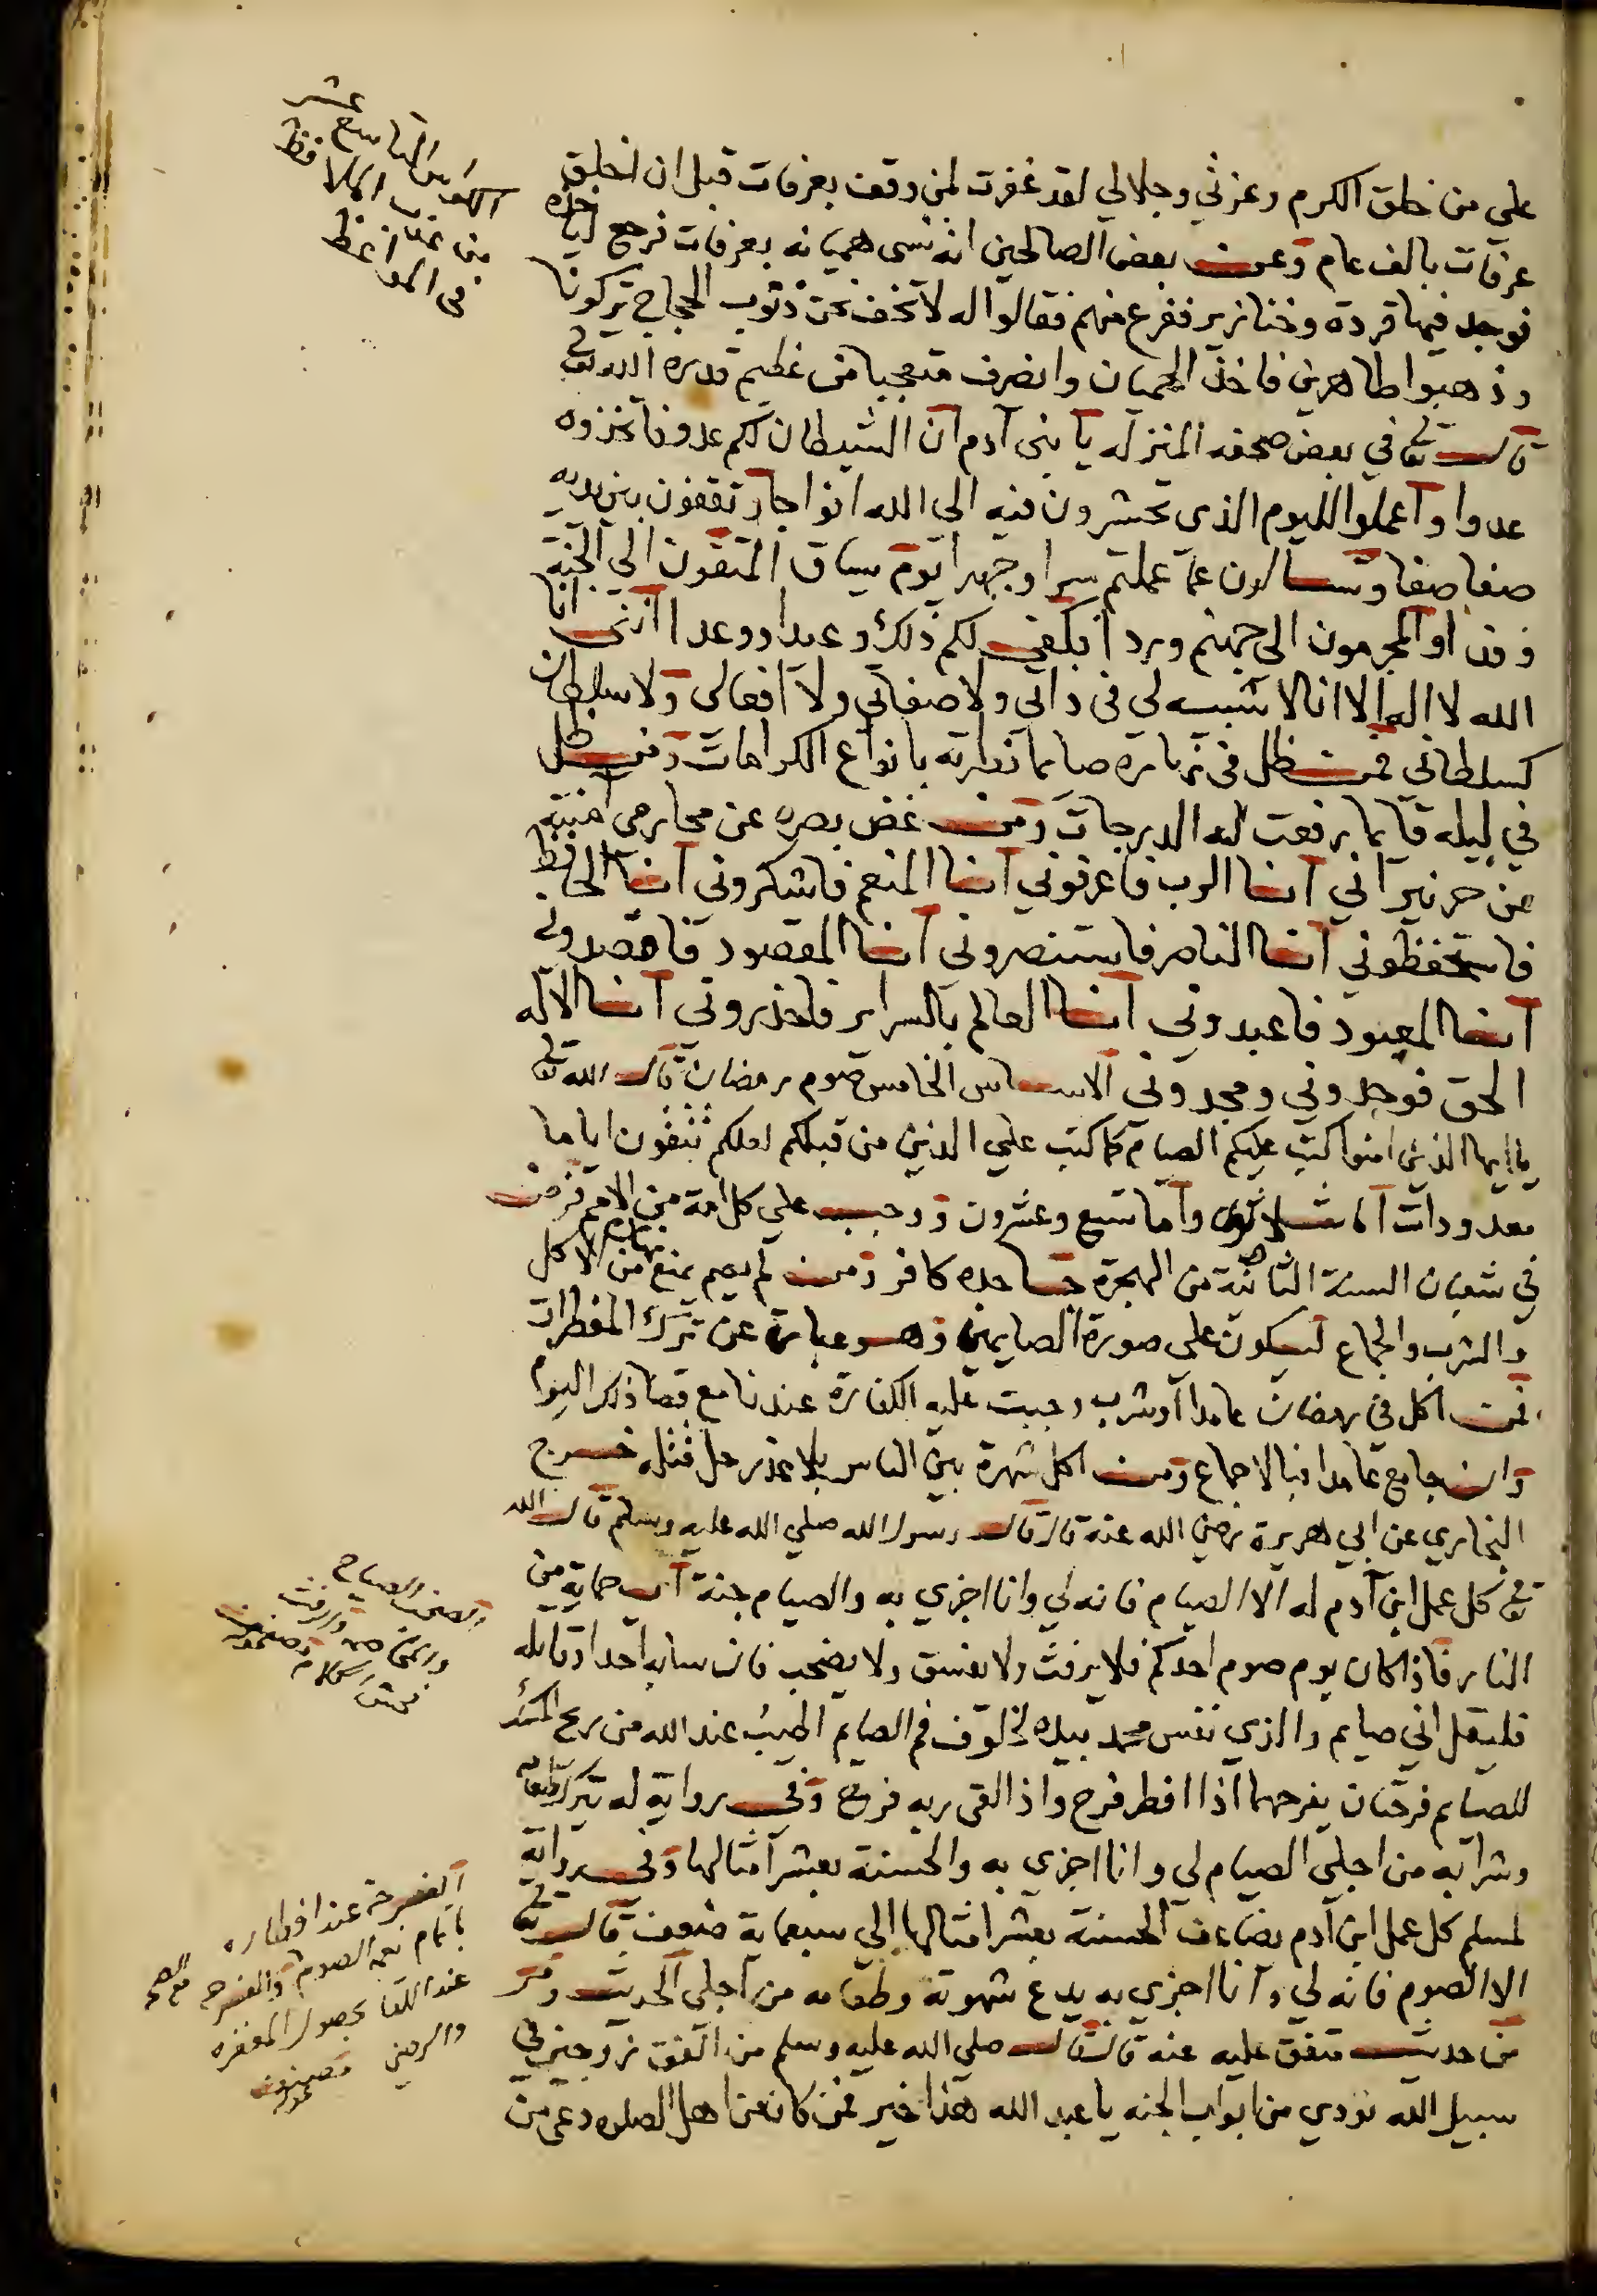 على من خلق الكرم وعزتي وجلالي لقد غفرت لمن وقف بعرفات قبل ان اخلق
عرفات بالف عام وعن بعض الصالحين انه نسى هميانه بعرفات فرجع لياخذه
فوجد فيها قردة وخنازير ففزع منهم فقالوا له لا تخف نحن ذنوب الحجاج تركونا
وذهبوا طاهرين فاخذ الهميان وانصرف متعجبا من عظيم قدرة الله تع
قال تع في بعض صحفه المنزله يا بنى آدم ان الشيطان لكم عدو فاتخذوه
عدوا واعملوا لليوم الذي تحشرون فيه الى الله افواجا وتقفون بين يديه
صفا صفا وتسالون عما عملتم سرا وجهرا يوم يساق المتقون الى الجنة
وفدا والمجرمون الى جهنم وردا يكفي لكم ذلك وعدا ووعيدا انني انا
الله لا اله الا انا لا شبيه لى فى ذاتي ولا صفاتي ولا افعالى ولا سلطان
كسلطاني فمن ظل في نهاره صايما نظرته بانواع الكرامات ومن ظل
في ليله قايما رفعت له الدرجات ومن غض بصره عن محارمى امنته
من حر نيراني انا الرب فاعرفوني انا المنعم فاشكروني انا الحافظ
فاستحفظوني انا الناصر فاستنصروني انا المقصود فاقصدوني
انا المعبود فاعبدوني انا العالم بالسراير فاحذروني انا الاله
الحق فوحدوني ومجدوني الاساس الخامس صوم رمضان قال الله تع
يا ايها الذين امنوا كتب عليكم الصيام كما كتب علي الذين من قبلكم لعلكم تتقون اياما
معدودات اما ثلاثون واما تسع وعشرون ووجب علي كل امة من الامم فرض
في شعبان السنة الثانية من الهجرة جاحده كافر ومن لم يصم يمنع نهاره من الاكل
والشرب والجماع ليكون على صورة الصايمين وهو عبارة عن ترك المفطرات
فمن اكل في رمضان عامدا او شرب وجبت عليه الكفارة عندنا مع قضا ذلك اليوم
وان جامع عامدا فبالاجماع ومن اكل شهرة بين الناس بلا عذر حل قتله خرج
البخاري عن ابي هريرة رضي الله عنه قال قال رسول الله صلي الله عليه وسلم قال الله
تع كل عمل ابن آدم له الا الصيام فانه لي وانا اجزي به والصيام جنة اى حماية من
النار فاذا كان يوم صوم احدكم فلا يرفث ولا يفسق ولا يصخب فان سابه احد او قاتله
فليقل اني صايم والذي نفس محمد بيده لخلوف فم الصايم اطيب عند الله من ريح المسك
للصايم فرحتان يفرحهما اذا افطر فرح واذا لقى ربه فرح وفي رواية له يترك طعامه
وشرابه من اجلي الصيام لى وانا اجزي به والحسنة بعشر امثالها وفي رواية
لمسلم كل عمل ابن آدم يضاعف الحسنة بعشر امثالها الي سبعماية ضعف قال تع
الا الصوم فانه لي وانا اجزي به يدع شهوته وطعامه من اجلي الحديث وفي
من حديث متفق عليه عنه قال قال صلي الله عليه وسلم من انفق زوجين في
سبيل الله نودي من ابواب الجنه يا عبد الله هذا خير فمن كان من اهل الصلوه دعى من
عشر
التاسع
الكافظ
من عقد
في المواعظ
والصخب الصياح
والمخاصمه والرفث
فحش الكلام
الفرحة عند افطاره
باتمام نعمه الصوم والفرح
عند اللقا بحصول المغفره
والرضى